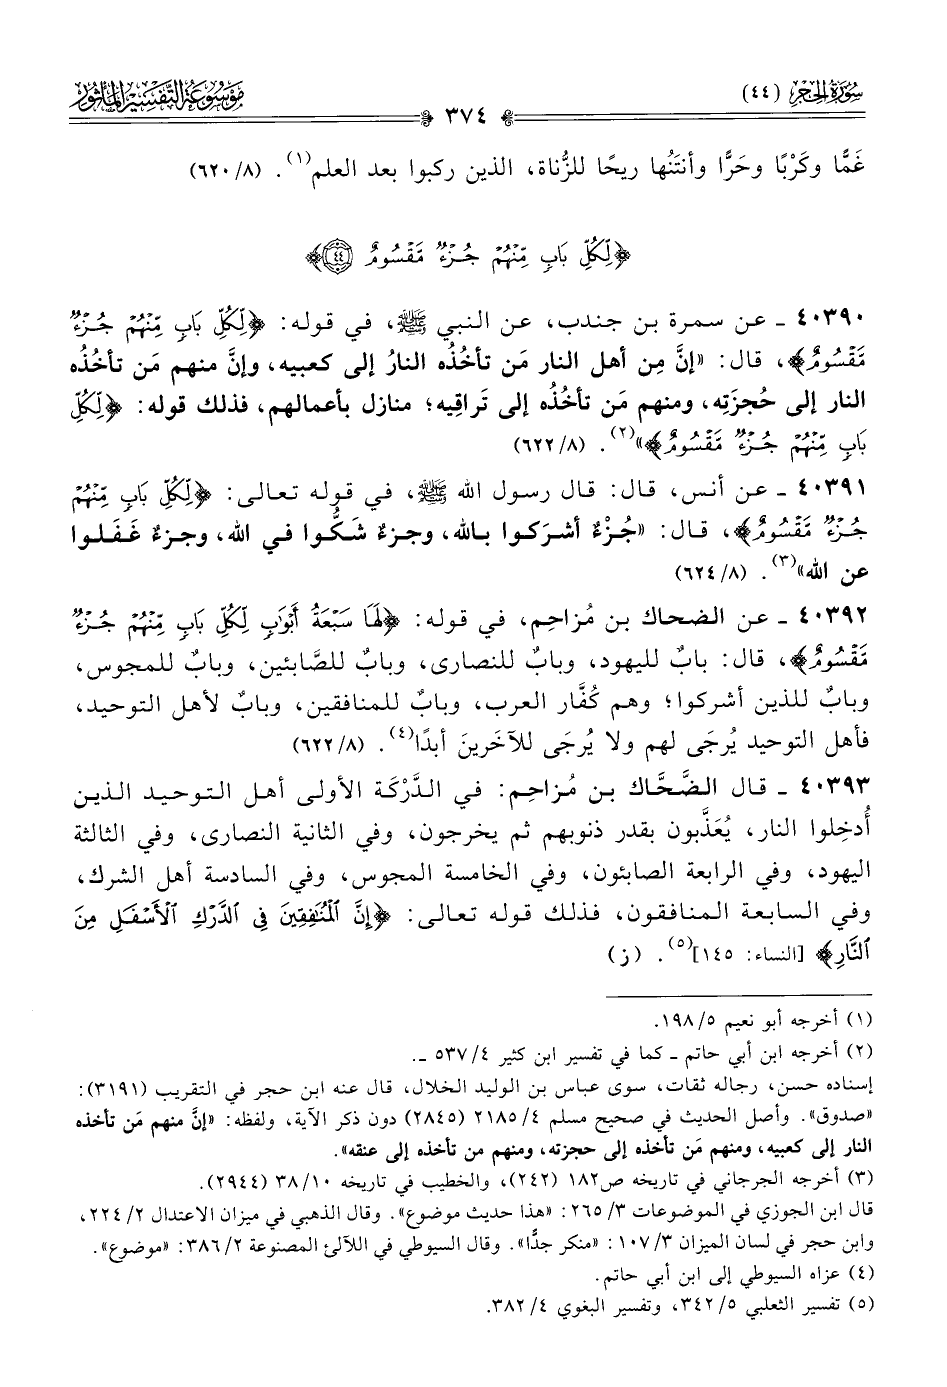 سُورَةُ الحِجْرِ (٤٤)
٣٧٤
مَوْسُوعَةُ التَّفْسِيرِ المَأْثُورِ
غَمًّا وكَرْبًا وحَرًّا وأنتَنُها ريحًا للزُّناة، الذين ركبوا بعد العلم(١). (٨/ ٦٢٠)
﴿لِكُلِّ بَابٍ مِّنْهُمْ جُزْءٌ مَّقْسُومٌ ٤٤﴾
٤٠٣٩٠ ـ عن سمرة بن جندب، عن النبي ﷺ، في قوله: ﴿لِكُلِّ بَابٍ مِّنْهُمْ جُزْءٌ
مَّقْسُومٌ﴾، قال: «إنَّ مِن أهل النار مَن تأخُذُه النارُ إلى كعبيه، وإنَّ منهم مَن تأخُذه
النار إلى حُجزَتِه، ومنهم مَن تأخُذُه إلى تَراقِيه؛ منازل بأعمالهم، فذلك قوله: ﴿لِكُلِّ
بَابٍ مِّنْهُمْ جُزْءٌ مَّقْسُومٌ﴾»(٢). (٨/ ٦٢٢)
٤٠٣٩١ ـ عن أنس، قال: قال رسول الله ﷺ، في قوله تعالى: ﴿لِكُلِّ بَابٍ مِّنْهُمْ
جُزْءٌ مَّقْسُومٌ﴾، قال: «جُزْءٌ أشرَكوا بالله، وجزءٌ شَكُّوا في الله، وجزءٌ غَفَلوا
عن الله»(٣). (٨/ ٦٢٤)
٤٠٣٩٢ ـ عن الضحاك بن مُزاحِم، في قوله: ﴿لَهَا سَبْعَةُ أَبْوَابٍ لِكُلِّ بَابٍ مِّنْهُمْ جُزْءٌ
مَّقْسُومٌ﴾، قال: بابٌ لليهود، وبابٌ للنصارى، وبابٌ للصَّابئين، وبابٌ للمجوس،
وبابٌ للذين أشركوا؛ وهم كُفَّار العرب، وبابٌ للمنافقين، وبابٌ لأهل التوحيد،
فأهل التوحيد يُرجَى لهم ولا يُرجَى للآخَرينَ أبدًا(٤). (٨/ ٦٢٢)
٤٠٣٩٣ ـ قال الضَّحَّاك بن مُزاحِم: في الدَّرْكة الأولى أهل التوحيد الذين
أُدخِلوا النار، يُعَذَّبون بقدر ذنوبهم ثم يخرجون، وفي الثانية النصارى، وفي الثالثة
اليهود، وفي الرابعة الصابئون، وفي الخامسة المجوس، وفي السادسة أهل الشرك،
وفي السابعة المنافقون، فذلك قوله تعالى: ﴿إِنَّ الْمُنَافِقِينَ فِي الدَّرْكِ الْأَسْفَلِ مِنَ
النَّارِ﴾ [النساء: ١٤٥](٥). (ز)
(١) أخرجه أبو نعيم ٥/ ١٩٨.
(٢) أخرجه ابن أبي حاتم ـ كما في تفسير ابن كثير ٤/ ٥٣٧ ـ.
إسناده حسن، رجاله ثقات، سوى عباس بن الوليد الخلال، قال عنه ابن حجر في التقريب (٣١٩١):
«صدوق». وأصل الحديث في صحيح مسلم ٤/ ٢١٨٥ (٢٨٤٥) دون ذكر الآية، ولفظه: «إنَّ منهم مَن تأخذه
النار إلى كعبيه، ومنهم مَن تأخذه إلى حجزته، ومنهم من تأخذه إلى عنقه».
(٣) أخرجه الجرجاني في تاريخه ص١٨٢ (٢٤٢)، والخطيب في تاريخه ١٠/ ٣٨ (٢٩٤٤).
قال ابن الجوزي في الموضوعات ٣/ ٢٦٥: «هذا حديث موضوع». وقال الذهبي في ميزان الاعتدال ٢/ ٢٢٤،
وابن حجر في لسان الميزان ٣/ ١٠٧: «منكر جدًّا». وقال السيوطي في اللآلئ المصنوعة ٢/ ٣٨٦: «موضوع».
(٤) عزاه السيوطي إلى ابن أبي حاتم.
(٥) تفسير الثعلبي ٥/ ٣٤٢، وتفسير البغوي ٤/ ٣٨٢.